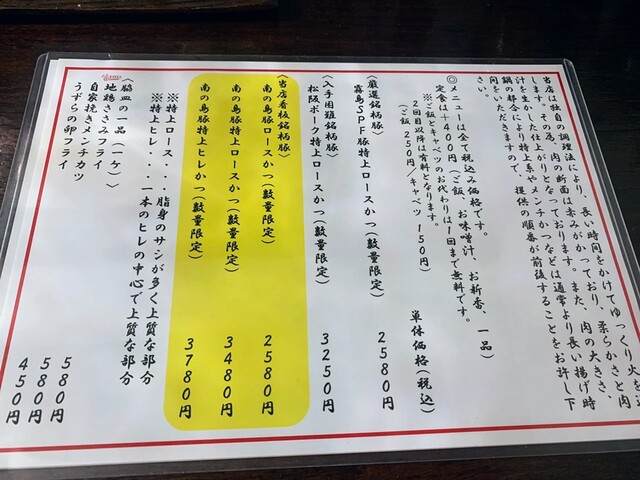 当店は独自の調理法により、長い時間をかけてゆっくり火を通
します。その為、肉の断面は赤みがかっており、柔らかさと肉
汁を生かした仕上がりとなっております。また、肉の大きさ、
鍋の都合により特上系やメンチかつなどは通常より長い揚げ時
間をいただきますので、提供の順番が前後することをお許し下
さい。
◎メニューは全て税込み価格です。
定食は＋400円（ご飯、お味噌汁、お新香、一品）
※ご飯とキャベツのお代わりは１回まで無料です。
２回目以降は有料となります。
（ご飯250円／キャベツ150円）
単体価格（税込）
〈厳選銘柄豚〉
霧島SPF豚特上ロースかつ（数量限定） 2580円
〈入手困難銘柄豚〉
松阪ポーク特上ロースかつ（数量限定） 3250円
〈当店看板銘柄豚〉
南の島豚ロースかつ（数量限定） 2580円
南の島豚特上ロースかつ（数量限定） 3480円
南の島豚特上ヒレかつ（数量限定） 3780円
※特上ロース．．．脂身のサシが多く上質な部分
※特上ヒレ．．．一本のヒレの中心で上質な部分
〈脇皿の一品（一ケ）〉
地鶏ささみフライ 580円
自家挽きメンチカツ 580円
うずらの卵フライ 450円